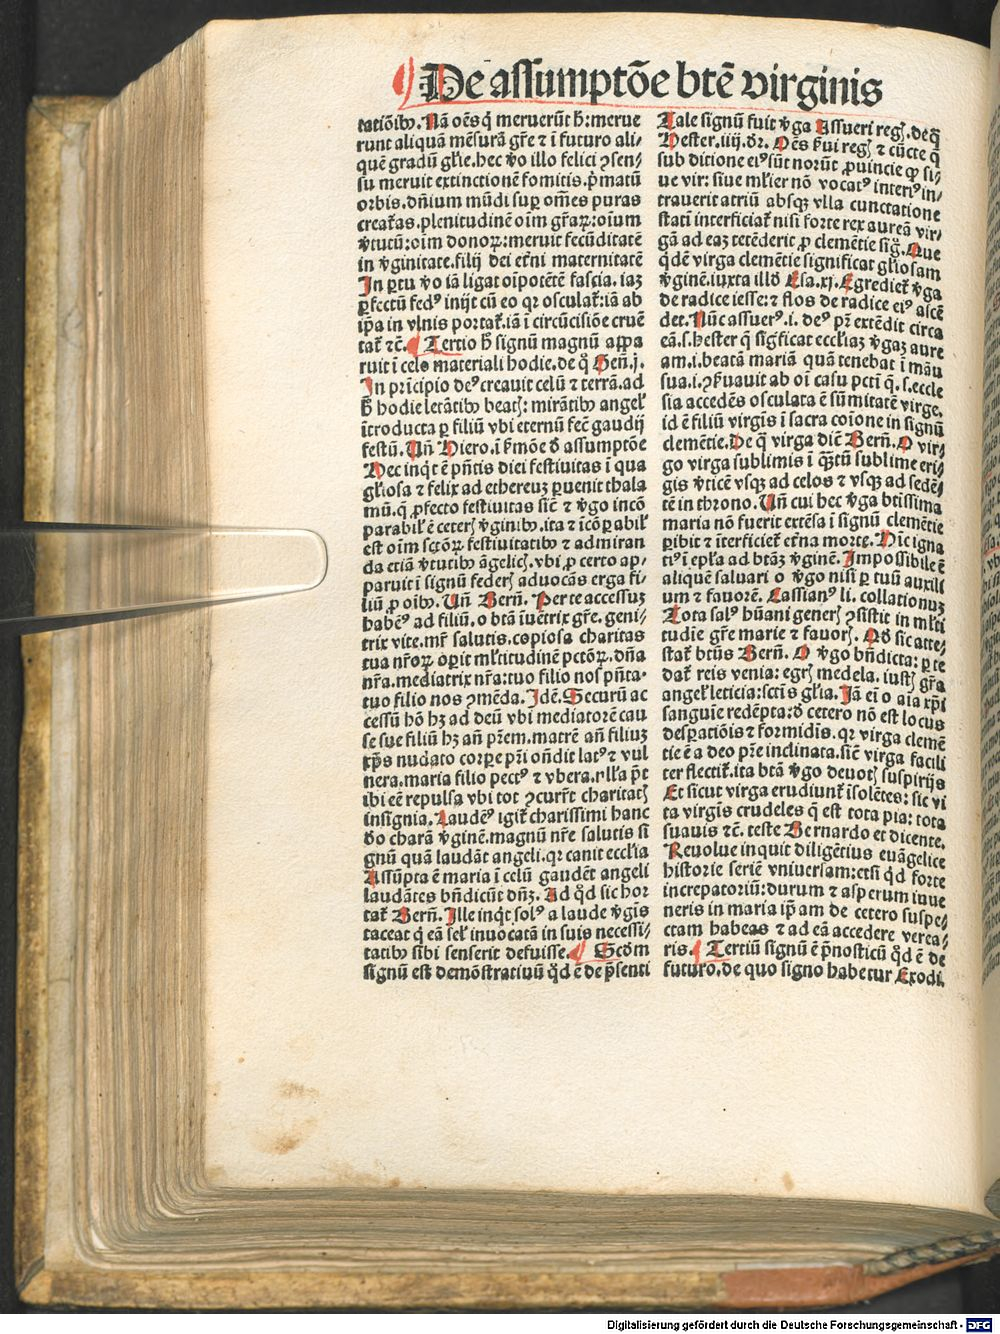 De assumptōe btē virginis
tatiōibꝰ. Nā oēs q̄ meruerūt h̄: merue
runt aliquā mēsurā gr̄e ⁊ ī futuro ali⸗
quē gradū gl̄ie. hec v̄o illo felici ꝯsen⸗
su meruit extinctionē fomitis. p̄matū
orbis. dn̄ium mūdi suꝑ om̄es puras
creat̄as. plenitudinē oīm gr̄aꝝ: oīum
v̄tutū: oīm donoꝝ: meruit fecūditatē
in v̄ginitate. filij dei et̄ni maternitatē
In ꝑtu v̄o iā ligat oīpotētē fascia. iaꝫ
ꝑfectū fedꝰ inijt cū eo qꝛ osculat̄: iā ab
ip̄a in vlnis portat̄. iā ī circūcisiōe cruē
tat̄ ⁊c̄. Tertio h̄ signū magnū appa
ruit ī celo materiali hodie. de q̊ Gen̄. j.
In prīcipio deꝰ creauit celū ⁊ terrā. ad
h̄ hodie letātibꝰ beatꝭ: mirātibꝰ angel̄
ītroducta ꝑ filiū vbi eternū fec̄ gaudij
festū. Un̄ Hiero. ī ẜmōe d̄ assumptōe
Hec inq̇t ē p̄ntis diei festiuitas ī qua
gl̄iosa ⁊ felix ad ethereuꝫ ꝑuenit thala
mū. q̄ ꝓfecto festiuitas sic̄ ⁊ v̄go incō
parabil̄ ē ceterꝭ v̄ginibꝰ. ita ⁊ īcōꝑabil̄
est oīm sctōꝝ festiuitatibꝰ ⁊ admiran
da etiā v̄tutibꝰ āgelicꝭ. vbi ꝓ certo ap⸗
paruit ī signū federꝭ aduocās erga fi⸗
liū ꝓ oībꝰ. Un̄ Bern̄. Per te accessuꝫ
habēꝰ ad filiū. o btā īuētrix gr̄e. geni⸗
trix vite. mr̄ salutis. copiosa charitas
tua nr̄oꝝ oꝑit ml̄titudinē pctōꝝ. dn̄a
nr̄a. mediatrix nr̄a: tuo filio nos pn̄ta.
tuo filio nos ꝯmēda. Idē. Securū ac
cessū hō hꝫ ad deū vbi mediatorē cau
se sue filiū hꝫ an̄ p̄rem. matrē an̄ filiuꝫ
xp̄s nudato corꝑe pr̄i on̄dit latꝰ ⁊ vul
nera. maria filio pectꝰ ⁊ vbera. nl̄la p̄t
ibi eē repulsa vbi tot ꝯcurr̄t charitatꝭ
insignia. Laudēꝰ igit̄ charissimi hanc
do charā v̄ginē. magnū nr̄e salutis si
gnū quā laudāt angeli. qꝛ canit eccl̄ia
Assūpta ē maria ī celū gaudēt angeli
laudātes bn̄dicūt dn̄ꝫ. Ad qd̄ sic hor
tat̄ Bern̄. Ille inq̇t solꝰ a laude v̄gīs
taceat q̇ eā sel̄ inuocatā in suis necessi⸗
tatibꝰ sibi senserit defuisse. Scd̄m
signū est demōstratiuū qd̄ ē de p̄senti
Tale signū fuit v̄ga Assueri regꝭ. de q̄
Hester. iiij. dꝛ. Oēs ẜui regꝭ ⁊ cūcte q̄
sub ditione eiꝰ sūt norūt ꝓuincie ꝙ si⸗
ue vir: siue ml̄ier nō vocatꝰ interiꝰ in⸗
trauerit atriū absqꝫ vlla cunctatione
statī interficiat̄ nisi forte rex aureā vir⸗
gā ad eaꝫ tetēderit ꝓ clemētie sig̊. Que
qdē virga clemētie significat gl̄iosam
v̄ginē. iuxta illd̄ Esa. xj. Egrediet̄ v̄ga
de radice iesse: ⁊ flos de radice eiꝰ ascē
det. Nūc assuerꝰ .i. deꝰ pr̄ extēdit circa
eā. s. hester q̄ sig̓ficat eccl̄iaꝫ v̄gaꝫ aure
am .i. beatā mariā quā tenebat ī māu
sua .i. ꝯẜuauit ab oī casu pctī q̄. s. eccle
sia accedēs osculata ē sūmitatē virge.
id ē filiū virgīs ī sacra coīone in signū
clemētie. De q̄ virga dic̄ Bern̄. O vir⸗
go virga sublimis ī q̄stū sublime eri⸗
gis v̄ticē vsqꝫ ad celos ⁊ vsqꝫ ad sedē⸗
tē in throno. Un̄ cui hec v̄ga btissima
maria nō fuerit extēsa ī signū clemētie
ꝑibit ⁊ īterficiet̄ et̄na morte. Hīc igna
tiꝰ ī epl̄a ad btāꝫ v̄ginē. Impossibile ē
aliquē saluari o v̄go nisi ꝑ tuū auxili
um ⁊ fauorē. Cassianꝰ li. collationuꝫ
Tota salꝰ hūani generꝭ ꝯsistit in ml̄ti
tudīe gr̄e marie ⁊ fauorꝭ. Qd̄ sic atte⸗
stat̄ btūs Bern̄. O v̄go bn̄dicta: ꝑ te
dat̄ reis venia: egrꝭ medela. iustꝭ gr̄a
angel̄ leticia: sctīs gl̄ia. Jā ei ō aīa xp̄i
sanguīe redēpta: d̄ cetero nō est locus
desꝑatiōis ⁊ formidīs. qꝛ virga clemē
tie ē a deo pr̄e inclinata. sic̄ virga facili
ter flectit̄. ita btā v̄go deuotꝭ suspirijs
Et sicut virga erudiunt̄ īsolētes: sic vi
ta virgīs crudeles q̄ est tota pia: tota
suauis ⁊c̄. teste Bernardo et dicente.
Reuolue inquit diligētius euāgelice
historie seriē vniuersam: etsi qd̄ forte
increpatoriū: durum ⁊ asperum inue
neris in maria ip̄am de cetero suspe⸗
ctam habeas ⁊ ad eā accedere verea⸗
ris. Tertiū signū ē p̄nosticū qd̄ ē de
futuro. de quo signo habetur Exodi.
Digitalisierung gefördert durch die Deutsche Forschungsgemeinschaft - DFG